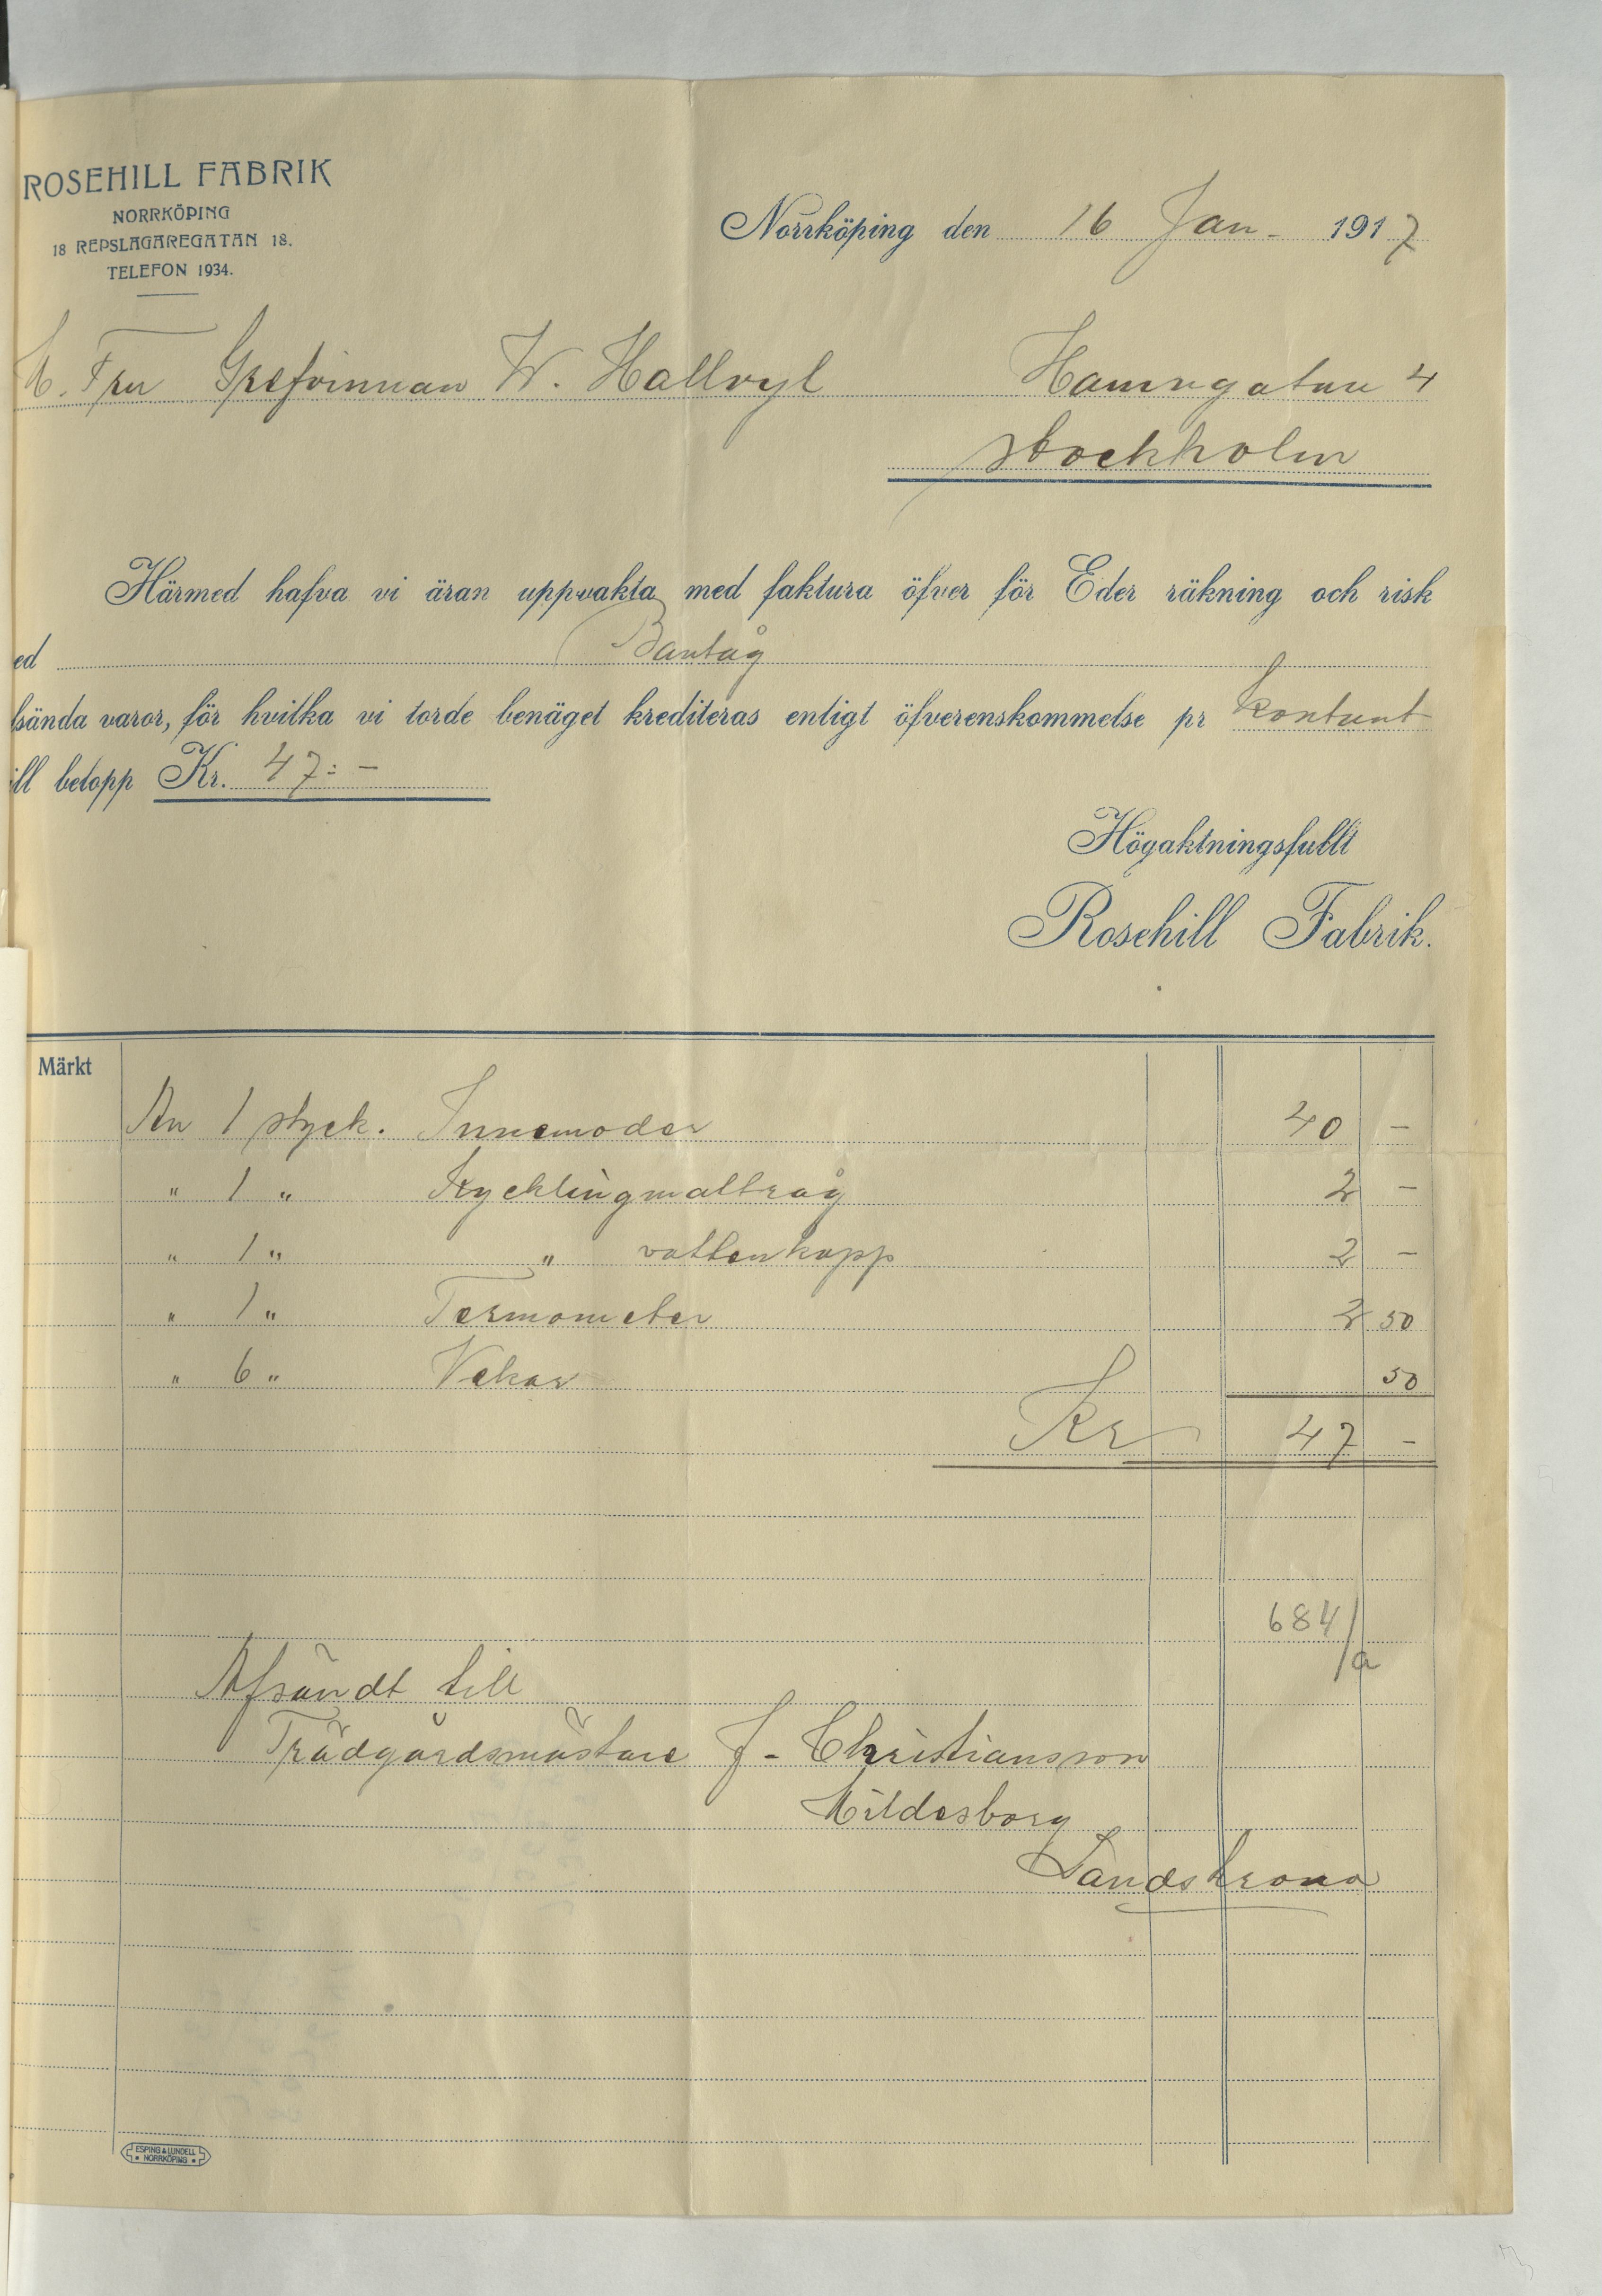 ROSEHILL FABRIK
NORRKÖPING
18 REPSLAGAREGATAN 18.
TELEFON 1934.
Norrköping den 16 Jan. 1917
Fru Grefvinnan W. Hallvyl Hamngatan 4
Stockholm
Härmed hafva vi äran uppvakta med faktura öfver för Eder räkning och risk
ed Bantåg
sända varor, för hvilka vi torde benäget krediteras enligt öfverenskommelse pr Kontant
ill belopp Kr. 47:-
Högaktningsfullt
Rosehill Fabrik.
Märkt
An 1 styck. Innemoder 40 -
" 1 " Kycklingmattråg 2 -
" 1 " " vattenkopp 2 -
" 1 " Termometer 2 50
" 6 " Vekar 50
Kr 47 -
684/a
Afsändt till
Trädgårdsmästare J- Christiansson
Hildesborg
Landskrona
ESPING & LUNDELL
NORRKÖPING